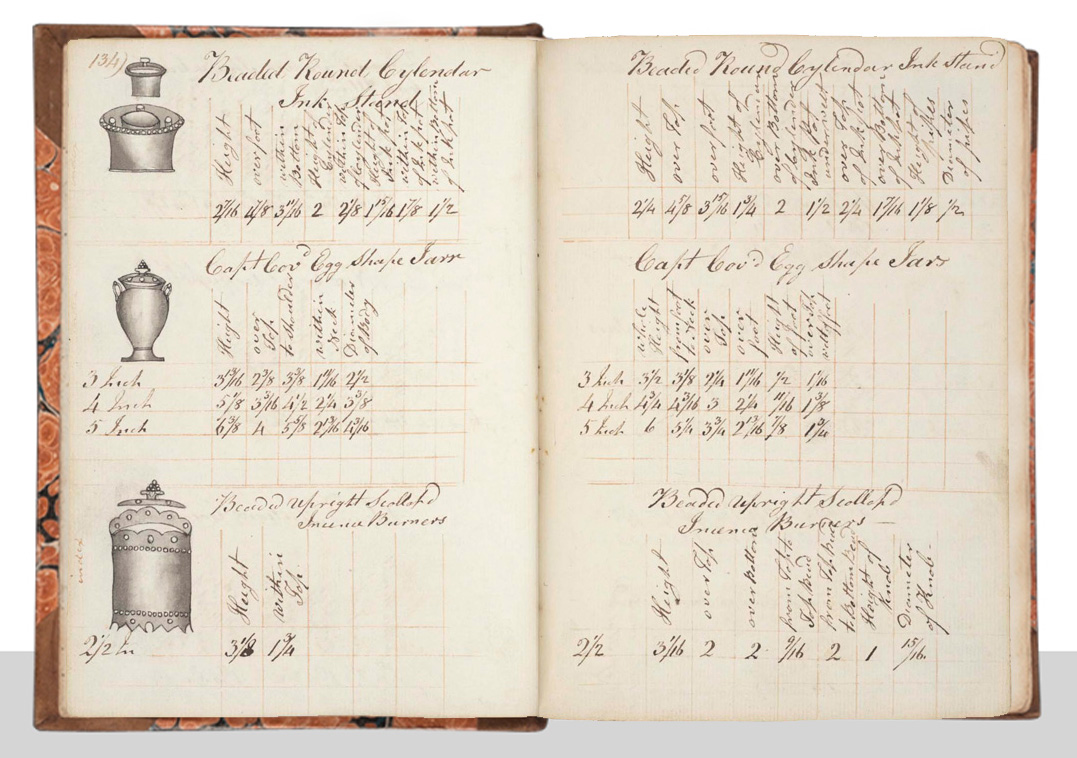 134)
Beaded Round Cylendar
Ink Stand
Height
over foot
within Bottom
Height Cylender
within Top of Cylender
Height of Ink pot
within Top of Inkpot
within Bottom of Inkpot
2 7/16 4 7/8 3 11/16 2 2 1/8 1 15/16 1 7/8 1 1/2
Capt Cov'd Egg Shape Jarr
Height
over Top
to Shoulder
within Neck
Diameter of Body
3 Inch 3 13/16 2 3/8 3 3/8 1 11/16 2 1/2
4 Inch 5 1/8 3 3/16 4 1/2 2 1/4 3 3/8
5 Inch 6 3/8 4 5 5/8 2 13/16
index
Beaded upright Scollop'd
Incence Burners
Height
within Top
2 1/2 In 3 1/8 1 3/4
Beaded Round Cylendar Ink Stand
Height
over Top
over foot
Height of Cylender
over Bottom of Cylender
Ink Pot underneath
over Top of Inkpot
over Bottom of Inkpot
Height of pipes
Diameter of pipes
2 1/4 4 7/8 3 15/16 1 3/4 2 1 1/2 2 1/4 1 7/8 1/2
Capt Cov'd Egg Shape Jars
whole Height
from foot to neck
over Top
over foot
Height of foot
over Top
3 Inch 3 1/2 3 1/8 2 1/4 1 11/16 1/2 1 1/16
4 Inch 4 3/4 4 3/16 3 2 1/4 11/16 1 3/8
5 Inch 6 5 1/4 3 3/4 2 13/16 7/8 1 3/4
Beaded upright Scollop'd
Incence Burners
Height
over Top
over Bottom
from Top to Top Bead
from Top Bead to Bottom Bead
Height of Knob
Diameter of Knob
2 1/2 3 1/16 2 2 9/16 2 1 15/16